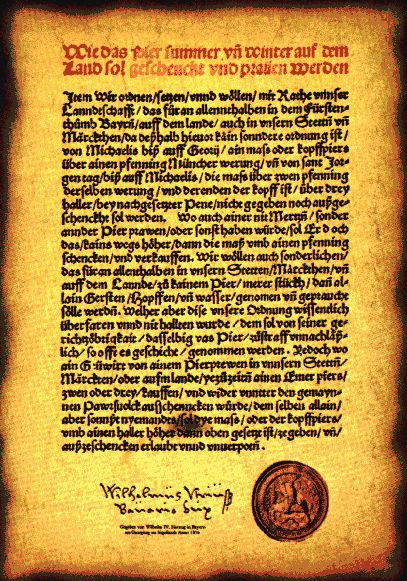 Wie das Pier summer vñ winter auf dem
Land sol geschenckt vnd prauen werden
Item Wir ordnen/setzen/vnnd wöllen/mit Rathe vnnser
Lanndtschafft/das für an allenthalben in dem Fürsten-
thũmb Bayrñ/auff dem lande/auch in vnsern Stettñ vñ
Märckthen/da deßhalb hieuor kain sonndere ordnung ist/
von Michaelis biß auff Georij/ain mass oder kopffpiers
über ainen pfenning Müncher werung/vñ von sant Jor-
gen tag/biß auff Michaelis/die mass über zwen pfenning
derselben werung/vnd derenden der kopff ist/über drey
haller/bey nachgesetzter Pene/nicht gegeben noch außge-
schenckht sol werden. Wo auch ainer nit Mertzñ/sonder
annder Pier prawen/oder sonst haben würde/sol Er doch
das/kains wegs höher/dann die maß vmb ainen pfenning
schencken/vnd verkauffen. Wir wöllen auch sonderlichen/
das für an allenthalben in vnsern Stetten/Märckthen/vñ
auff dem Lannde/zũ kainem Pier/merer stückh/dañ al-
lain Gersten/Hopffen/vñ wasser/genomen vñ gepraucht
sölle werdñ. Welher aber dise vnsere Ordnung wissendlich
überfaren vnnd nit hallten wurde/dem sol von seiner ge-
richtzöbrigkait/dasselbig vas Pier/züstraff vnnachläß-
lich/so offt es geschiche/genommen werden. Jedoch wo
ain Güwirt von ainem Pierprewen in vnnsern Stettñ/
Märckten/oder aufm lande/yezüzeitñ ainen Emer piers/
zwen oder drey/kauffen/vnd wider vnnter den gemayn-
nen Pawrsuolck ausschenncken würde/dem selben allain/
aber sonnst nyemandts/sol dye mass/oder der kopffpiers/
vmb ainen haller höher dann oben gesetzt ist/ze geben/vñ/
außzeschencken erlaubt vnnd vnuerpotñ.
Gegeben von Wilhelm IV. Herzog in Bayern
am Georgitag zu Ingolstadt Anno 1516